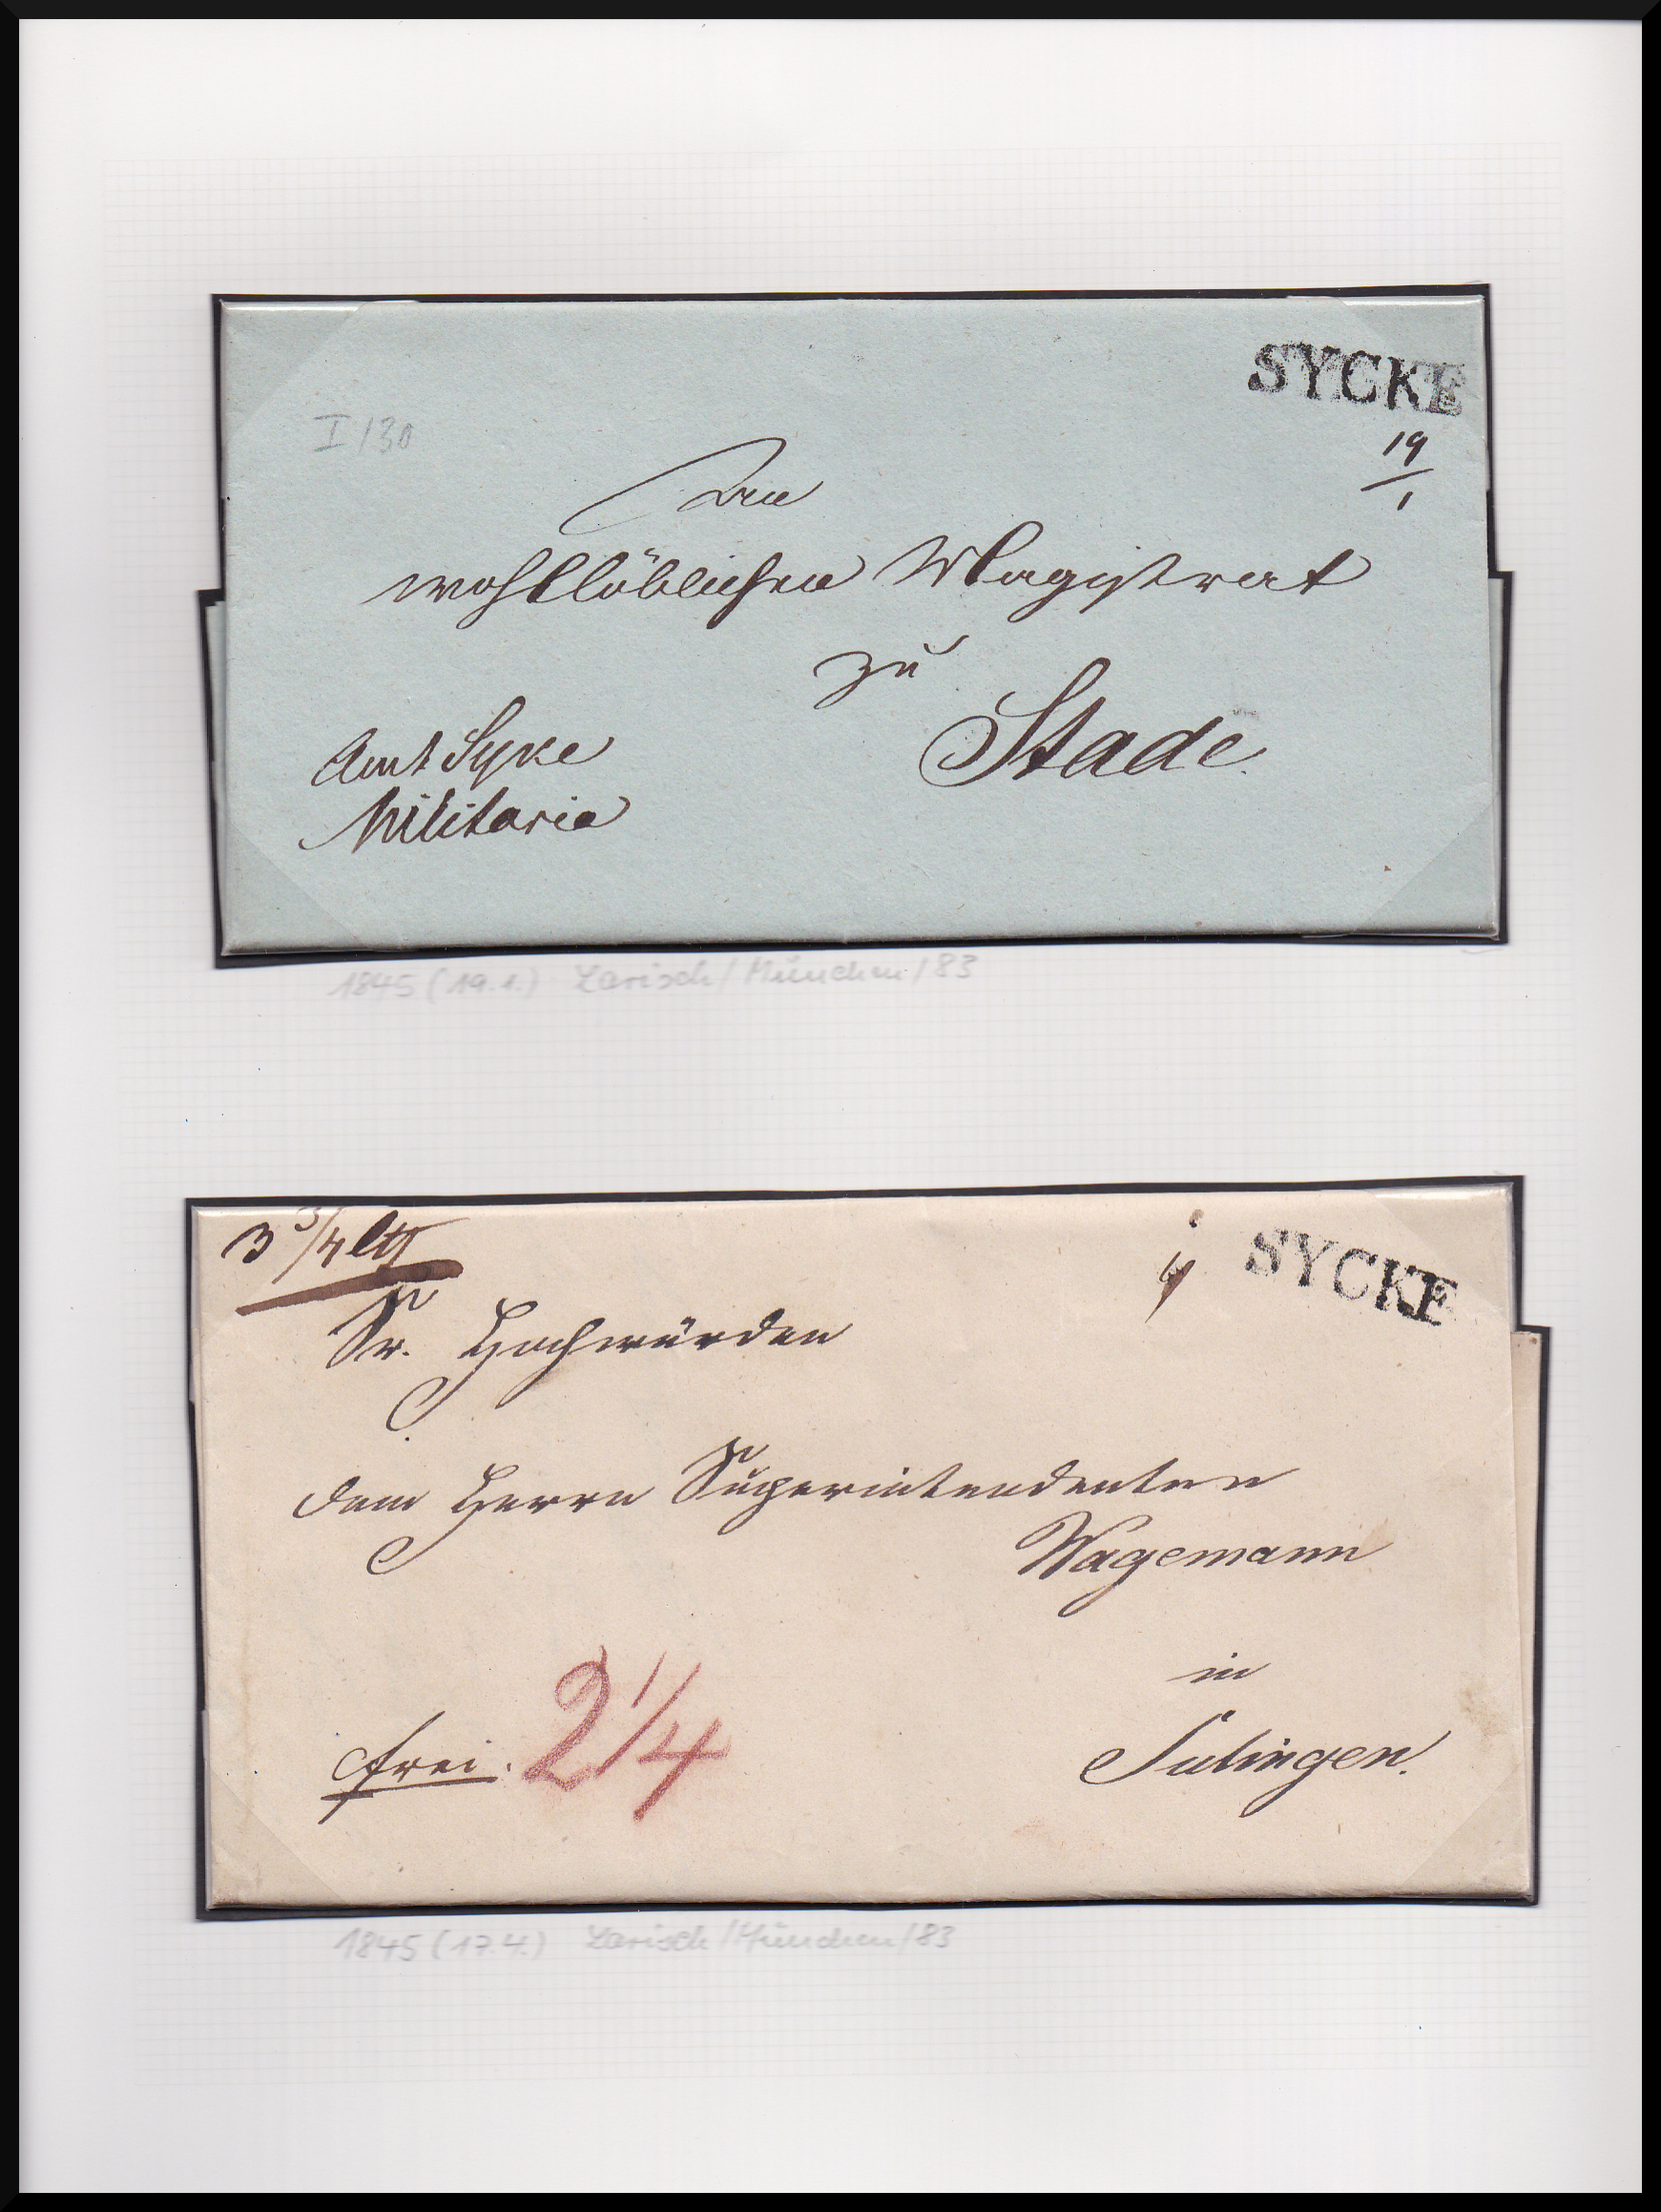 SYCKE
I/30
19/1
An
wohllöblichen Magistrat
zu
Stade.
Amt Syke
Militaria
1845 (19.1.) Larisch/München/83
3 3/4 lth
SYCKE
Sr. Hochwürden
dem Herrn Superintendenten
Wagemann
in
frei. 2 1/4
Sulingen.
1845 (17.4.) Larisch/München/83